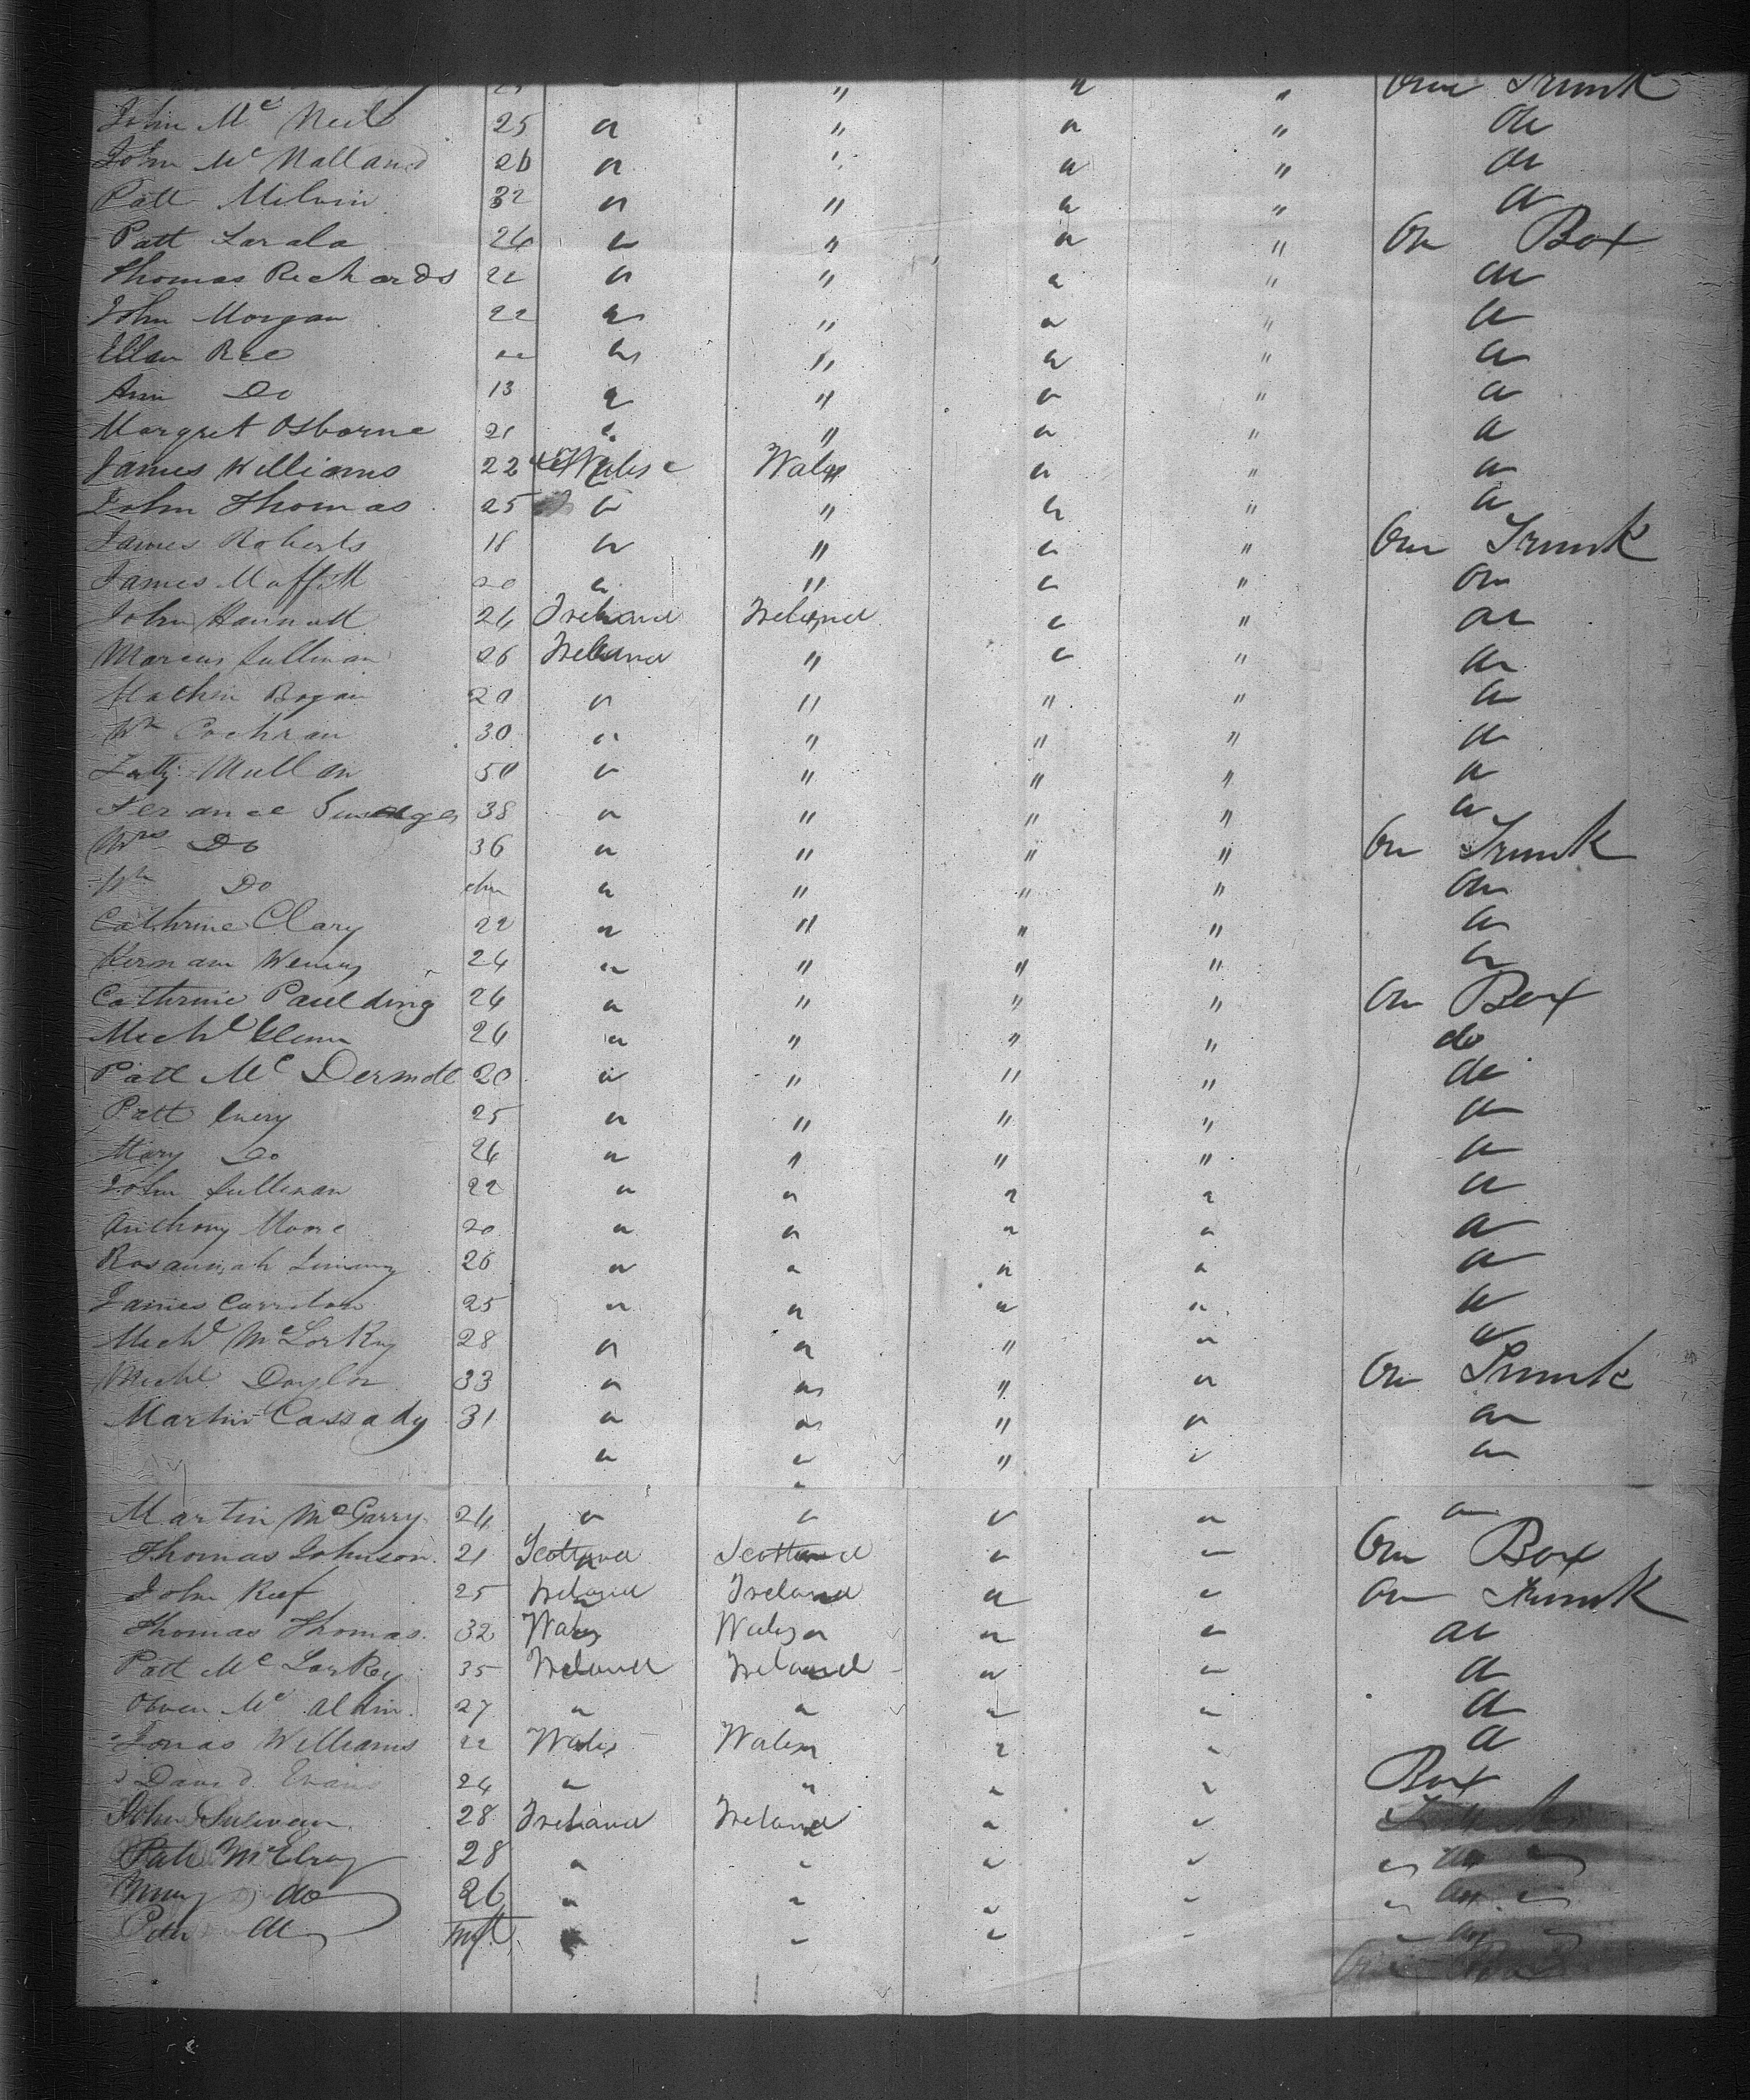 23 " " " " One Trunk
John Mc Neil 25 " " " " do
John Mc Nalland 26 " " " " do
Patt Melvin 32 " " " " "
Patt 24 " " " " One Box
Thomas Richards 22 " " " " do
John Morgan 22 " " " " "
Ellen Ree " " " " "
Ann Do 13 " " " " "
Margret Osborne 21 " " " " "
James Williams 22 Wales Wales " " "
John Thomas 25 " " " " "
James Roberts 18 " " " " One Trunk
James Moffitt 20 " " " " do
John Hannatt 24 Ireland Ireland " " do
Marcus Sullivan 26 Ireland " " " do
Mathew Bogan 20 " " " " "
Wm Cochran 30 " " " " "
Mullen 50 " " " " "
Terance 38 " " " " "
Mrs Do 36 " " " " One Trunk
Wm Do " " " " do
Cathrine Clary 22 " " " " "
Kernam 24 " " " " "
Cathrine Paulding 24 " " " " One Box
Michl Glenn 24 " " " " do
Patt Mc Dermott 20 " " " " do
Patt 25 " " " " "
Mary Do 24 " " " " "
John Sullivan 22 " " " " "
Anthony Moore 20 " " " " "
Rosannah 26 " " " " "
James 25 " " " " "
Michl McLorKey 28 " " " " "
Michl Daylor 33 " " " " One Trunk
Martin Cassady 31 " " " " "
" " " " "
Martin McGarry 24 " " " " "
Thomas Johnson 21 Scotland Scotland " " One Box
John Reef 25 Ireland Ireland " " One Trunk
Thomas Thomas 32 Wales Wales " " do
Patt Mc LorKey 35 Ireland Ireland " " "
Owen Mc Aldin 27 " " " " "
Jonas Williams 22 Wales Wales " " "
David Evans 24 " " " " Box
John Sullivan 28 Ireland Ireland " "
Patt McElroy 28 " " " " " do "
Mary do 26 " " " " " do "
do inft " " " " " do "